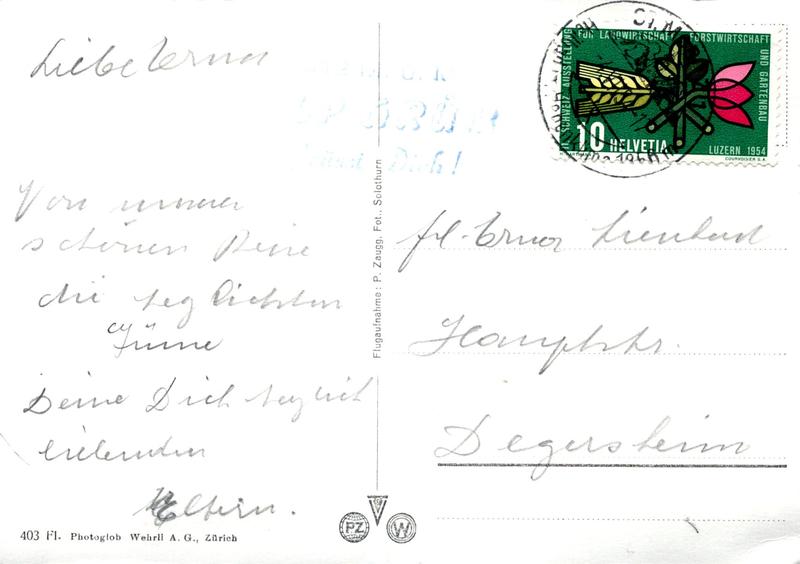 Liebe Erna
Von unserer
schönen Reise
die herzlichsten
Grüsse
Deine Dich herzlich
liebenden
Eltern.
403 Fl. Photoglob Wehrli A. G., Zürich
Flugaufnahme: P. Zaugg, Fot., Solothurn
PZ
W
Dich!
SCHWEIZ. AUSSTELLUNG FÜR LANDWIRTSCHAFT FORSTWIRTSCHAFT UND GARTENBAU
10 HELVETIA LUZERN 1954
COURVOISIER S.A.
frl. Erna Lienhard
Hauptstr.
Degersheim